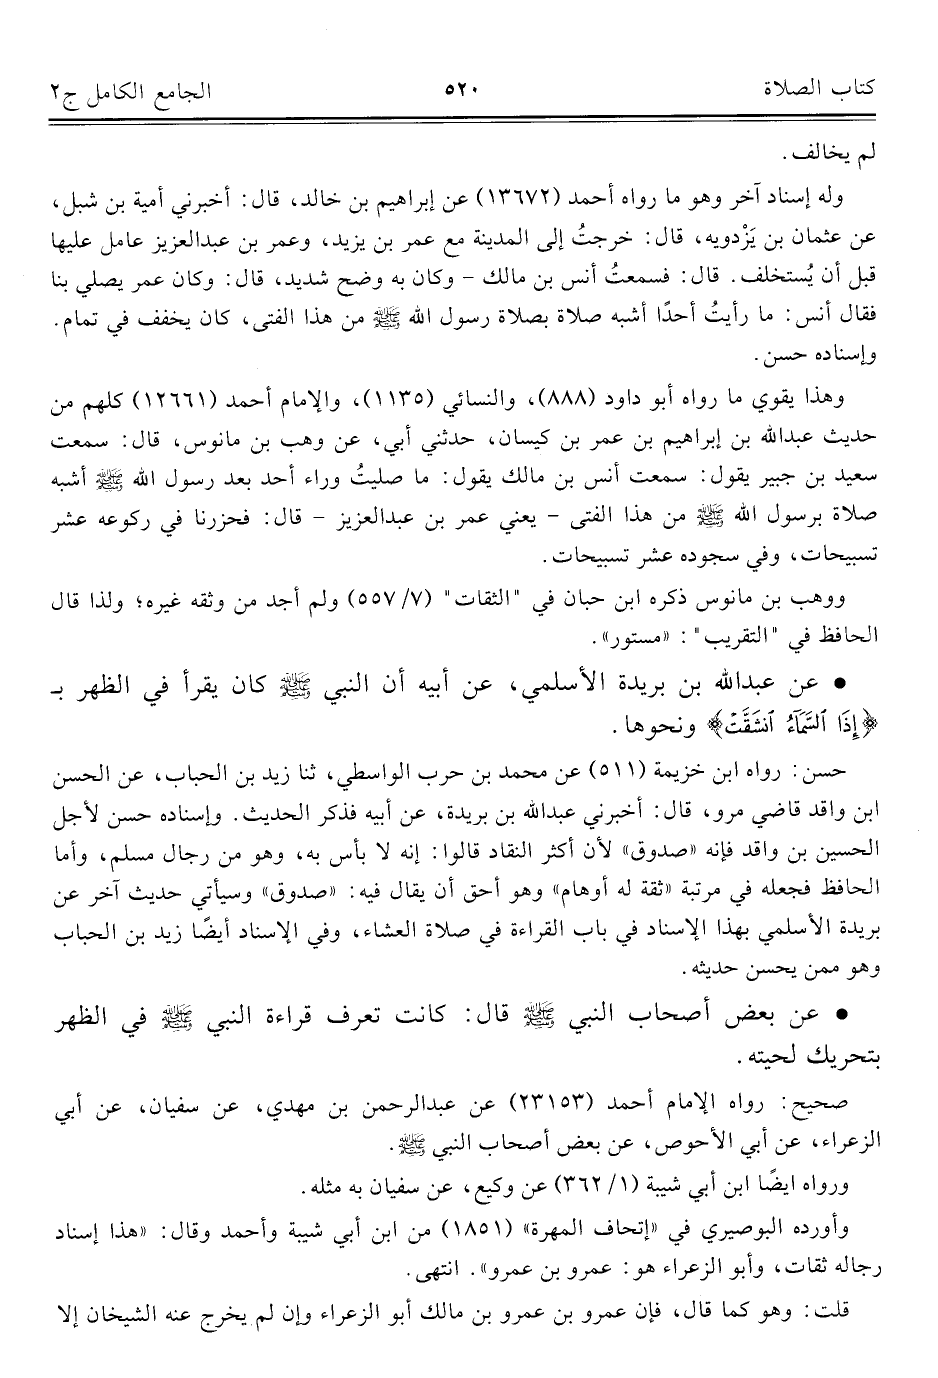 كتاب الصلاة ٥٢٠ الجامع الكامل ج٢
لم يخالف.
وله إسناد آخر وهو ما رواه أحمد (١٣٦٧٢) عن إبراهيم بن خالد، قال: أخبرني أمية بن شبل،
عن عثمان بن يَزْدويه، قال: خرجتُ إلى المدينة مع عمر بن يزيد، وعمر بن عبدالعزيز عامل عليها
قبل أن يُستخلف. قال: فسمعتُ أنس بن مالك - وكان به وضح شديد، قال: وكان عمر يصلي بنا
فقال أنس: ما رأيتُ أحدًا أشبه صلاة بصلاة رسول الله ﷺ من هذا الفتى، كان يخفف في تمام.
وإسناده حسن.
وهذا يقوي ما رواه أبو داود (٨٨٨)، والنسائي (١١٣٥)، والإمام أحمد (١٢٦٦١) كلهم من
حديث عبدالله بن إبراهيم بن عمر بن كيسان، حدثني أبي، عن وهب بن مانوس، قال: سمعت
سعيد بن جبير يقول: سمعت أنس بن مالك يقول: ما صليتُ وراء أحد بعد رسول الله ﷺ أشبه
صلاة برسول الله ﷺ من هذا الفتى - يعني عمر بن عبدالعزيز - قال: فحزرنا في ركوعه عشر
تسبيحات، وفي سجوده عشر تسبيحات.
ووهب بن مانوس ذكره ابن حبان في "الثقات" (٧/ ٥٥٧) ولم أجد من وثقه غيره؛ ولذا قال
الحافظ في "التقريب": «مستور».
• عن عبدالله بن بريدة الأسلمي، عن أبيه أن النبي ﷺ كان يقرأ في الظهر بـ
﴿إِذَا ٱلسَّمَآءُ ٱنشَقَّتْ﴾ ونحوها.
حسن: رواه ابن خزيمة (٥١١) عن محمد بن حرب الواسطي، ثنا زيد بن الحباب، عن الحسن
ابن واقد قاضي مرو، قال: أخبرني عبدالله بن بريدة، عن أبيه فذكر الحديث. وإسناده حسن لأجل
الحسين بن واقد فإنه «صدوق» لأن أكثر النقاد قالوا: إنه لا بأس به، وهو من رجال مسلم، وأما
الحافظ فجعله في مرتبة «ثقة له أوهام» وهو أحق أن يقال فيه: «صدوق» وسيأتي حديث آخر عن
بريدة الأسلمي بهذا الإسناد في باب القراءة في صلاة العشاء، وفي الإسناد أيضًا زيد بن الحباب
وهو ممن يحسن حديثه.
• عن بعض أصحاب النبي ﷺ قال: كانت تعرف قراءة النبي ﷺ في الظهر
بتحريك لحيته.
صحيح: رواه الإمام أحمد (٢٣١٥٣) عن عبدالرحمن بن مهدي، عن سفيان، عن أبي
الزعراء، عن أبي الأحوص، عن بعض أصحاب النبي ﷺ.
ورواه ايضًا ابن أبي شيبة (١/ ٣٦٢) عن وكيع، عن سفيان به مثله.
وأورده البوصيري في «إتحاف المهرة» (١٨٥١) من ابن أبي شيبة وأحمد وقال: «هذا إسناد
رجاله ثقات، وأبو الزعراء هو: عمرو بن عمرو». انتهى.
قلت: وهو كما قال، فإن عمرو بن عمرو بن مالك أبو الزعراء وإن لم يخرج عنه الشيخان إلا